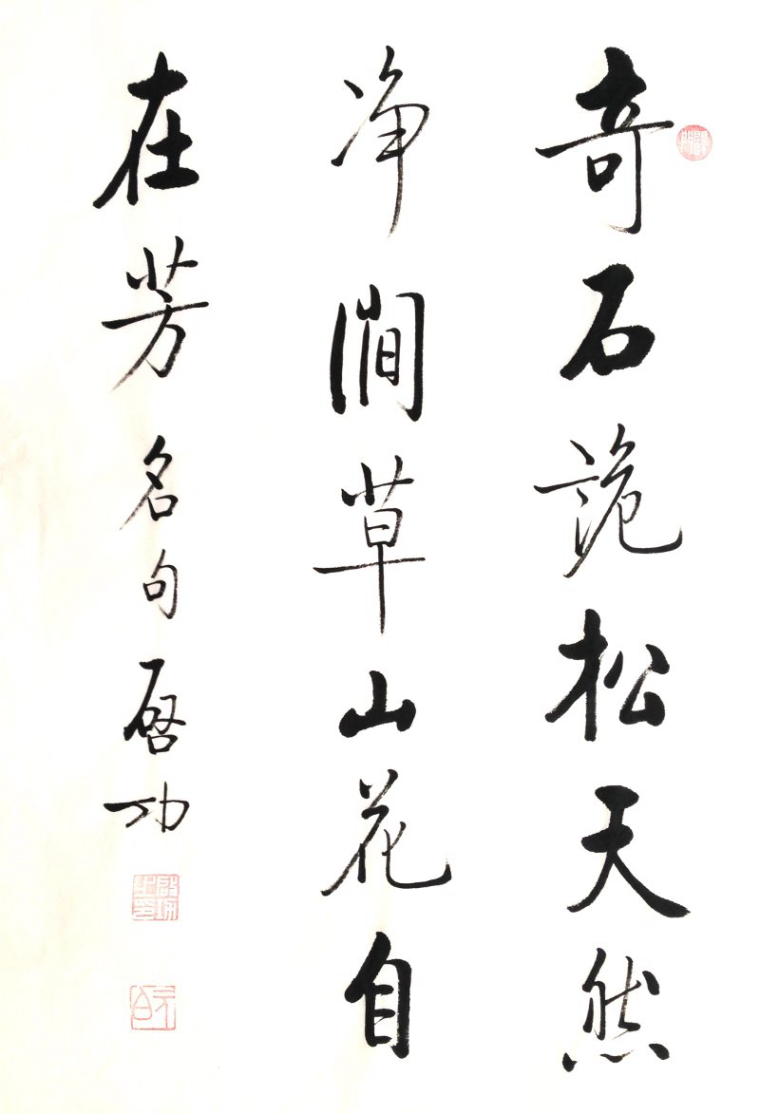 奇石诡松天然
净涧草山花自
在芳 名句 启功